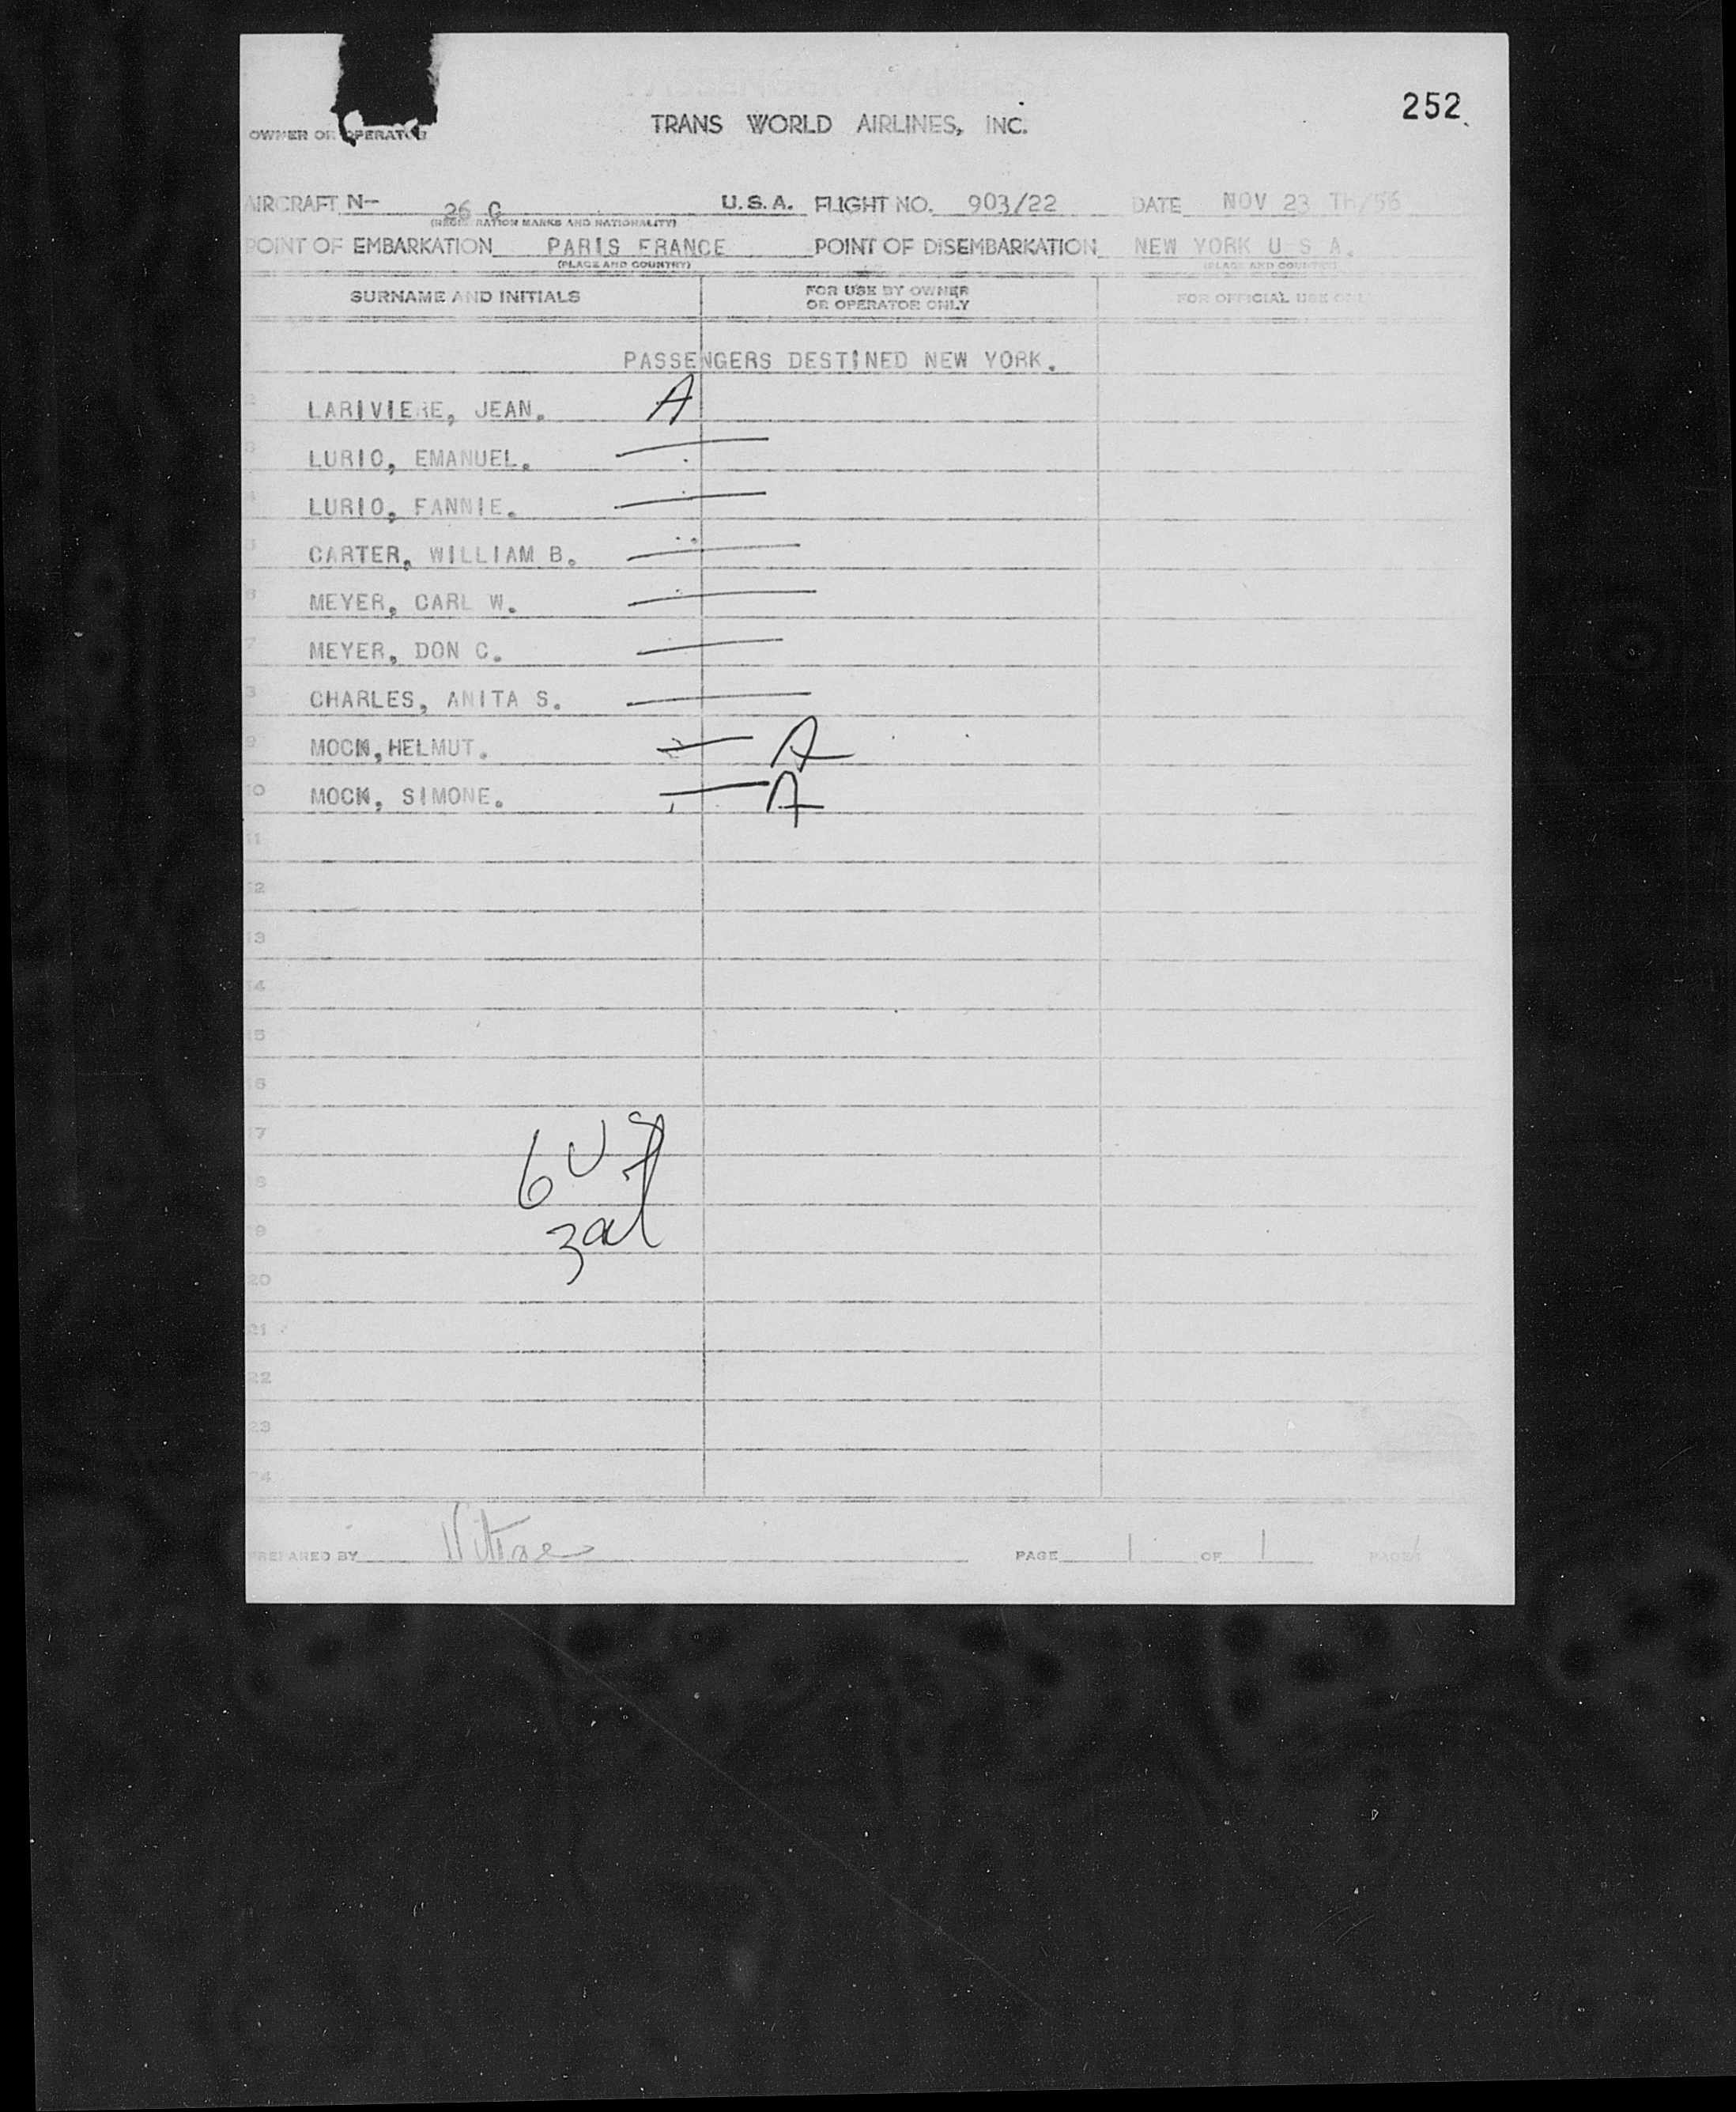 252
OWNER OR OPERATOR
TRANS WORLD AIRLINES, INC.
AIRCRAFT N- 26 C U.S.A. FLIGHT NO. 903/22 DATE NOV 23 TH/56
(REGISTRATION MARKS AND NATIONALITY)
POINT OF EMBARKATION PARIS FRANCE POINT OF DISEMBARKATION NEW YORK U S A.
(PLACE AND COUNTRY) (PLACE AND COUNTRY)
SURNAME AND INITIALS FOR USE BY OWNER OR OPERATOR ONLY FOR OFFICIAL USE ONLY
PASSENGERS DESTINED NEW YORK.
2 LARIVIERE, JEAN. A
3 LURIO, EMANUEL.
4 LURIO, FANNIE.
5 CARTER, WILLIAM B.
6 MEYER, CARL W.
7 MEYER, DON C.
8 CHARLES, ANITA S.
9 MOCK, HELMUT. A
10 MOCK, SIMONE. A
11
12
13
14
15
16
17
6 US
18
19
3 al
20
21
22
23
24
PREPARED BY PAGE 1 OF 1 PAGES